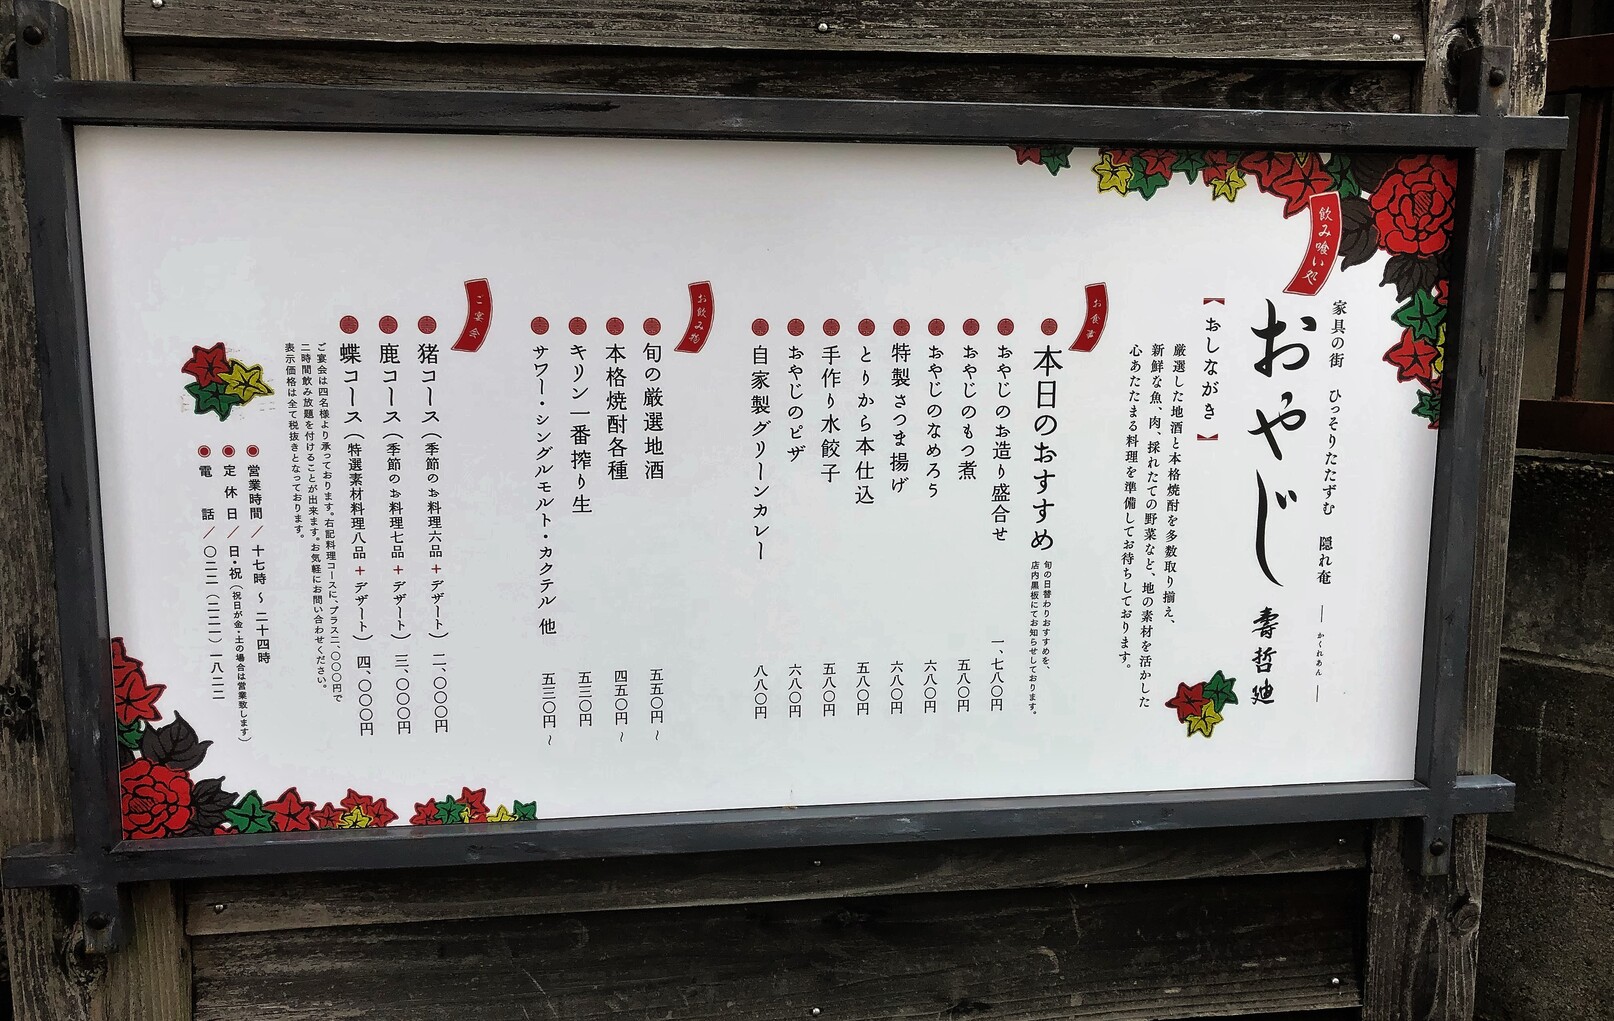 飲み喰い処
家具の街 ひっそりたたずむ 隠れ奄 ― かくれあん ―
おやじ 壽哲廸
【おしながき】
厳選した地酒と本格焼酎を多数取り揃え、
新鮮な魚、肉、採れたての野菜など、地の素材を活かした
心あたたまる料理を準備してお待ちしております。
お食事
本日のおすすめ 旬の日替わりおすすめを、
店内黒板にてお知らせしております。
おやじのお造り盛合せ 一、七八〇円
おやじのもつ煮 五八〇円
おやじのなめろう 六八〇円
特製さつま揚げ 六八〇円
とりから本仕込 五八〇円
手作り水餃子 五八〇円
おやじのピザ 六八〇円
自家製グリーンカレー 八八〇円
お飲み物
旬の厳選地酒 五五〇円~
本格焼酎各種 四五〇円~
キリン一番搾り生 五三〇円
サワー・シングルモルト・カクテル 他 五三〇円~
ご宴会
猪コース(季節のお料理六品+デザート) 二、〇〇〇円
鹿コース(季節のお料理七品+デザート) 三、〇〇〇円
蝶コース(特選素材料理八品+デザート) 四、〇〇〇円
ご宴会は四名様より承っております。右記料理コースに、プラス二、〇〇〇円で
二時間飲み放題を付けることが出来ます。お気軽にお問い合わせください。
表示価格は全て税抜きとなっております。
営業時間/十七時~二十四時
定休日/日・祝(祝日が金・土の場合は営業致します)
電話/〇二二(二二一)一八二二